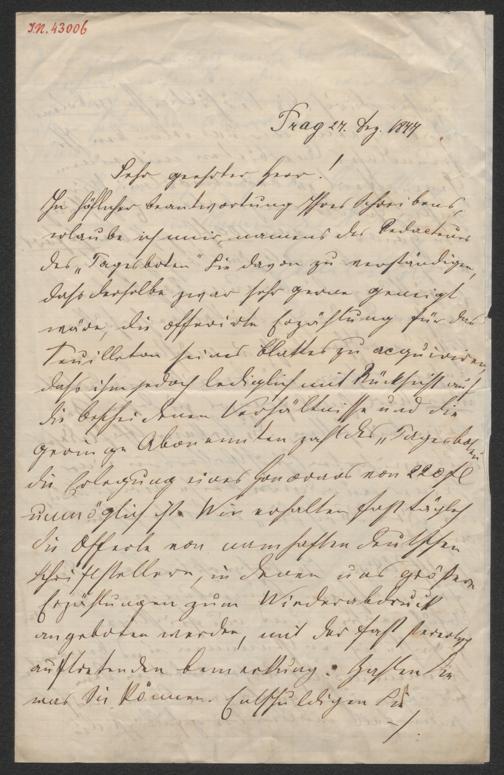 I.N. 43006
Prag 27. Dez. 1877
Sehr geehrter Herr!
In höflicher Beantwortung Ihres Schreibens,
erlaube ich mir, namens des Redacteurs
des „Tagesboten" Sie davon zu verständigen,
daß derselbe zwar sehr gerne geneigt
wäre, die offerirte Erzählung für das
Feuilleton seines Blattes zu acquiriren,
daß ihm jedoch lediglich mit Rücksicht auf
die bescheidenen Verhältnisse und die
geringe Abonnentenzahl des „Tagesboten"
die Erlegung eines Honorars von 220 fl
unmöglich ist. Wir erhalten fast täglich
die Offerte von namhaften deutschen
Schriftstellern, in denen uns größere
Erzählungen zum Wiederabdruck
angeboten werden, mit der fast stereotyp
auftretenden Bemerkung: Zahlen Sie
was Sie können. Entschuldigen Sie